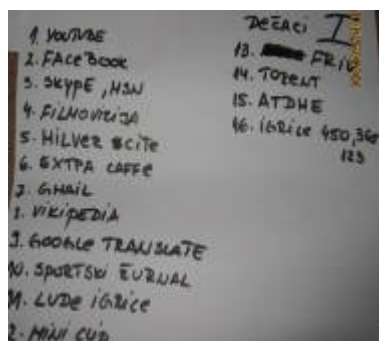 1. YOUTUBE
2. FACEBOOK
3. SKYPE, MSN
4. FILMOVIZIJA
5. MILVER SCITE
6. EXTPA CAFFE
7. GMAIL
8. VIKIPEDIA
9. GOOGLE TRANSLATE
10. SPORTSKI ŽURNAL
11. LUDE IGRICE
12. MINI CUP
DEČACI I
13. FRIV
14. TORENT
15. ATDHE
16. IGRICE 450, 360
123